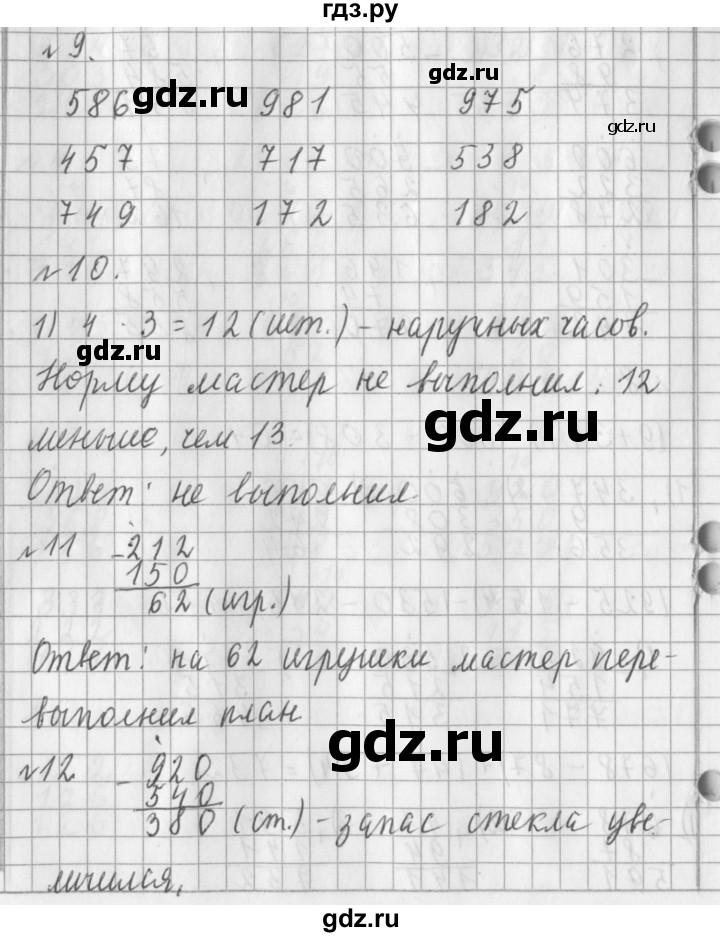 гдз.ру
№9.
586 981 975
gdz.ru
gdz.ru
gdz.ru
457 717 538
749 172 182
№10.
1) 4 · 3 = 12 (шт.) – наручных часов.
gdz.ru
Норму мастер не выполнил. 12
gdz.ru
меньше, чем 13.
Ответ: не выполнил.
№11 - 212
150
62 (игр.)
Ответ: на 62 игрушки мастер пере-
выполнил план
gdz.ru
№12 - 920
540
380 (ст.) – запас стекла уве-
личился,
gdz.ru